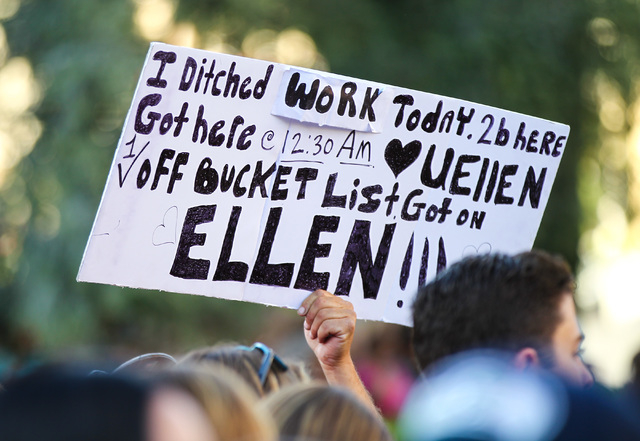 I Ditched WORK Today. 2b HERE
Got here @ 12:30 Am ♥ U EllEN
1 ✓ OFF BUCKET List Got on
ELLEN!!!